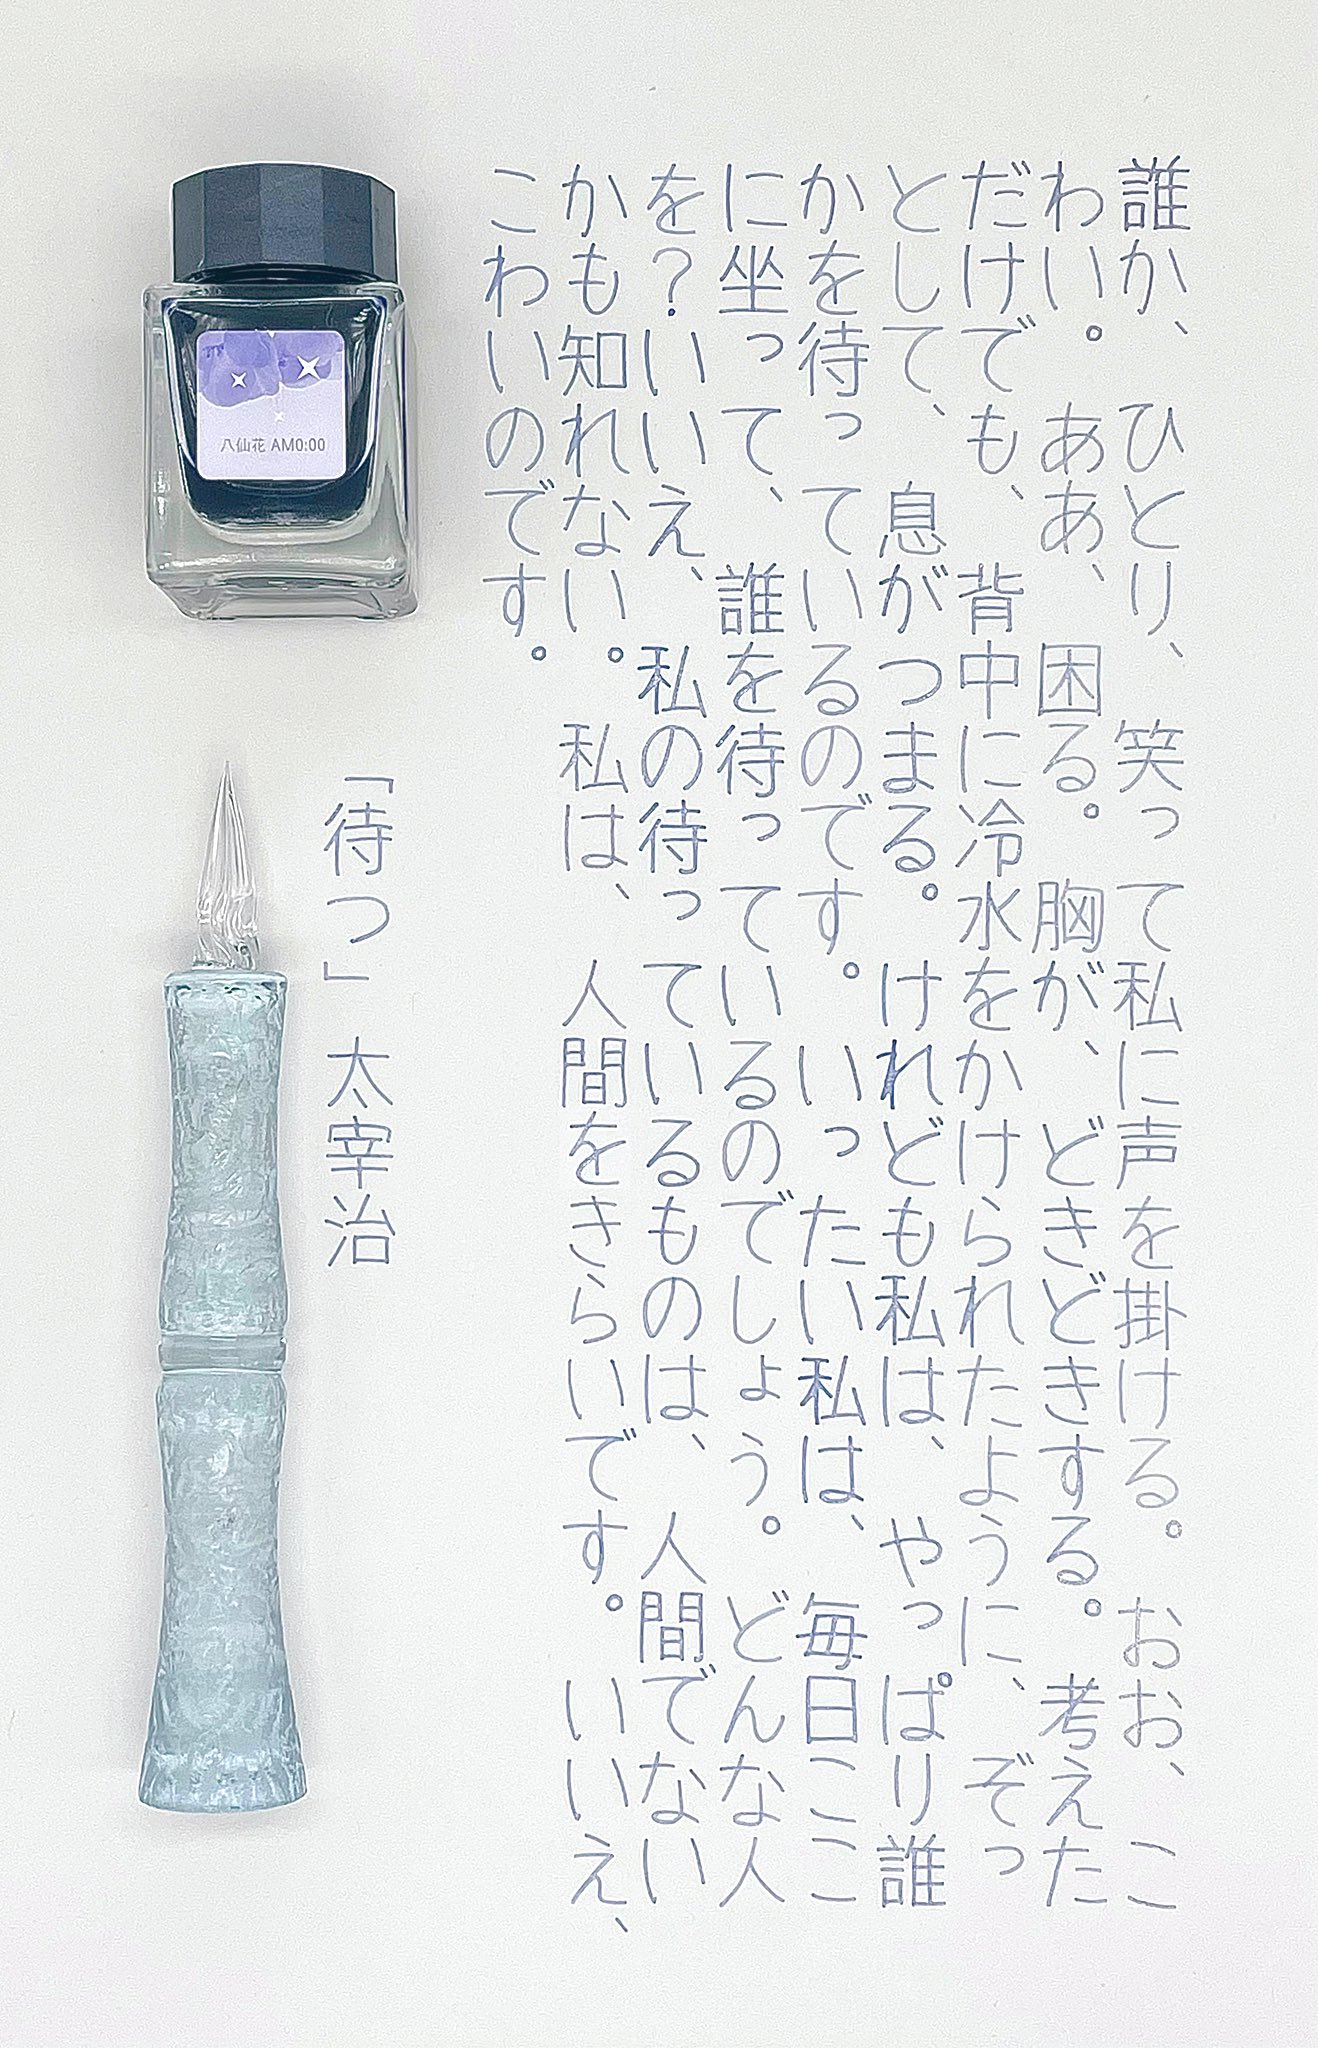 誰か、ひとり、笑って私に声を掛ける。おお、こ
わい。ああ、困る。胸が、どきどきする。考えた
だけでも、背中に冷水をかけられたように、ぞっ
として、息がつまる。けれども私は、やっぱり誰
かを待っているのです。いったい私は、毎日ここ
に坐って、誰を待っているのでしょう。どんな人
を?いいえ、私の待っているものは、人間でない
かも知れない。私は、人間をきらいです。いいえ、
こわいのです。
「待つ」太宰治
八仙花 AM0:00